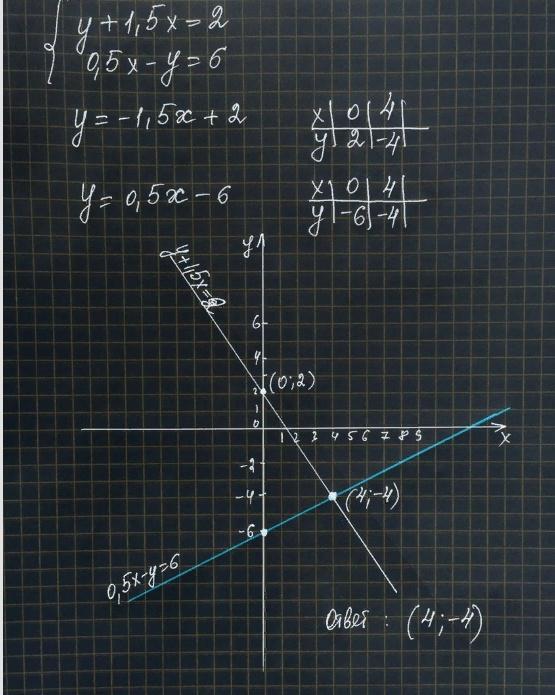 y + 1,5x = 2
0,5x - y = 6
y = -1,5x + 2
x | 0 | 4 |
y | 2 | -4 |
y = 0,5x - 6
x | 0 | 4 |
y | -6 | -4 |
y
y + 1,5x = 2
6
4
2
(0; 2)
1
0
1 2 3 4 5 6 7 8 9
x
-2
-4
(4; -4)
-6
0,5x - y = 6
Ответ : (4 ; -4)